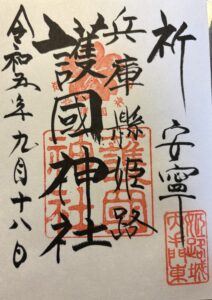 祈 安寧
兵庫縣姫路
護國神社
令和五年九月十八日
護國神社
姫路城
内本門東